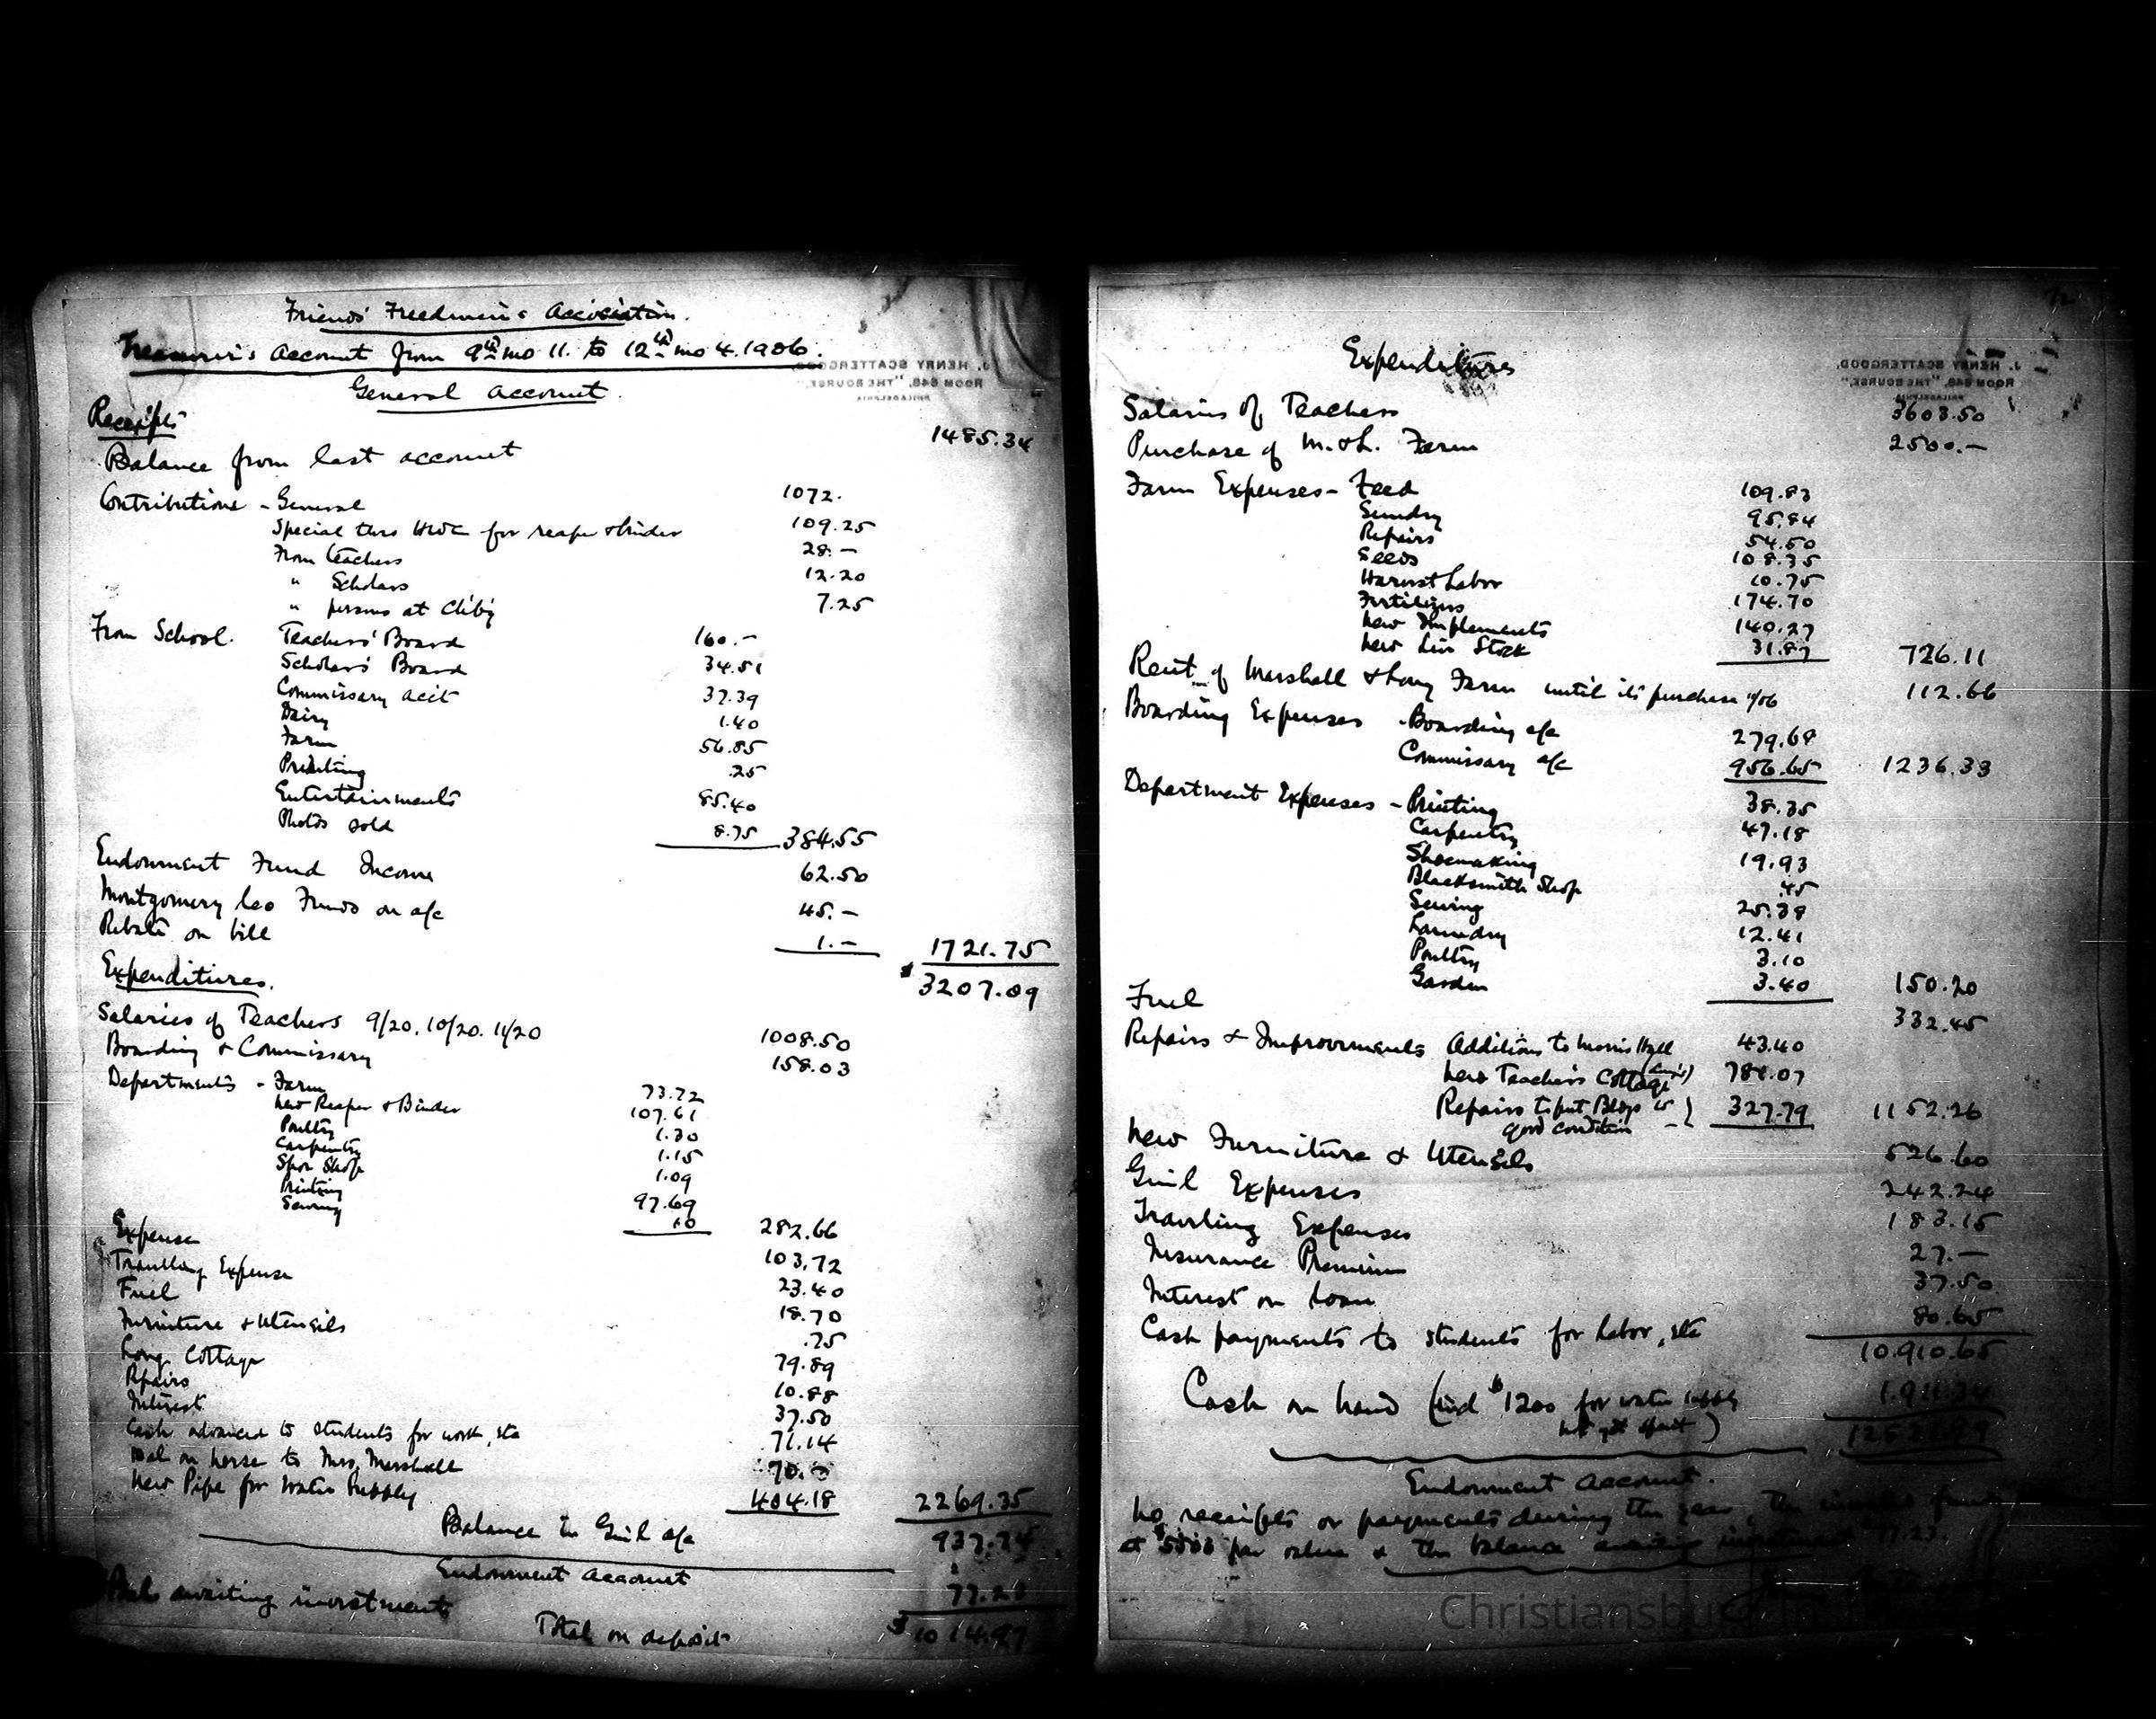 Friends' Freedmen's Association.
Treasurer's Account from 9th mo 11. to 12th mo 4. 1906.
General Account.
J. HENRY SCATTERGOOD,
ROOM 648, "THE BOURSE,"
PHILADELPHIA
Receipts
Balance from last account 1485.34
Contributions - General 1072.
Special thro HWC for reaper & binder 109.25
From teachers 28.-
" Scholars 12.20
" persons at Ch'b'g 7.25
From School. Teachers' Board 160.-
Scholars' Board 34.51
Commissary acct 37.39
Dairy 1.40
Farm 56.85
Printing .25
Entertainments 85.40
Photos sold 8.75 384.55
Endowment Fund Income 62.50
Montgomery Co Funds on a/c 45.-
Rebate on bill 1.- 1721.75
$ 3207.09
Expenditures.
Salaries of Teachers 9/20, 10/20. 11/20 1008.50
Boarding & Commissary 158.03
Departments - Farm 73.72
New Reaper & Binder 107.61
Poultry 1.30
Carpentry 1.15
Shoe Shop 1.09
Printing 97.69
Sewing .10 282.66
Expense 103.72
Travelling Expense 23.40
Fuel 18.70
Furniture & Utensils .75
Long Cottage 79.89
Repairs 10.88
Interest 37.50
Cash advanced to students for work, etc 71.14
Bal on horse to Mrs. Marshall 70.-
New Pipe for Water Supply 404.18 2269.35
Balance in Gen'l a/c 937.74
Endowment Account
Bal. awaiting investment 77.23
Total on deposit $ 1014.97
Expenditures
J. HENRY SCATTERGOOD,
ROOM 648, "THE BOURSE,"
PHILADELPHIA
Salaries of Teachers 3603.50
Purchase of M. & L. Farm 2500.-
Farm Expenses - Feed 109.83
Sundry 95.84
Repairs 54.50
Seeds 108.35
Harvest Labor 10.75
Fertilizers 174.70
New Implements 140.27
New Live Stock 31.87 726.11
Rent of Marshall & Long Farm until its purchase 11/06 112.66
Boarding Expenses - Boarding a/c 279.68
Commissary a/c 956.65 1236.33
Department Expenses - Printing 38.35
Carpentry 47.18
Shoemaking 19.93
Blacksmith Shop .45
Sewing 25.38
Laundry 12.41
Poultry 3.10
Garden 3.40 150.20
Fuel 332.45
Repairs & Improvements Additions to Morris Hall 43.40
New Teachers Cottage 781.07
Repairs to put Bldgs in } 327.79 1152.26
good condition
New Furniture & Utensils 526.60
Gen'l Expenses 242.24
Traveling Expenses 183.15
Insurance Premium 27.-
Interest on Loan 37.50
Cash payments to students for labor, etc 80.65
10.910.65
Cash on hand (incl $1200 for water supply
not yet spent)
Endowment Account.
No receipts or payments during the year, the
at $5500 par value & the balance awaiting investment 77.23.
Christiansburg